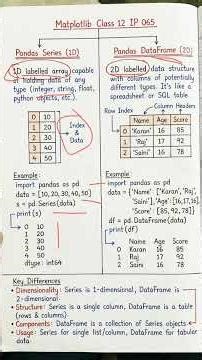 Matplotlib Class 12 IP 065
Pandas Series (1D)
1D labelled array capable
of holding data of any
type (integer, string, float,
python objects, etc.).
0 10
1 20
2 30
3 40
4 50
Index
&
Data
Example:
import pandas as pd
data = [10, 20, 30, 40, 50]
s = pd.Series(data)
print(s)
0 10
1 20
2 30
3 40
4 50
dtype: int64
Pandas DataFrame (2D)
2D labelled data structure
with columns of potentially
different types. It's like a
spreadsheet or SQL table
Row Index
Column Headers
Name Age Score
0 'Karan' 16 85
1 'Raj' 17 92
2 'Saini' 16 78
Example:
import pandas as pd
data = {'Name': ['Karan', 'Raj',
'Saini'], 'Age': [16,17,16],
'Score': [85, 92, 78]}
df = pd.DataFrame(data)
print(df)
Name Age Score
0 Karan 16 85
1 Raj 17 92
2 Saini 16 78
Key Differences
• Dimensionality: Series is 1-dimensional, DataFrame is
2-dimensional
• Structure: Series is a single column, DataFrame is a table
(rows & columns)
• Components: DataFrame is a collection of Series objects
• Usage: Series for single list/column, DataFrame for tabular
data